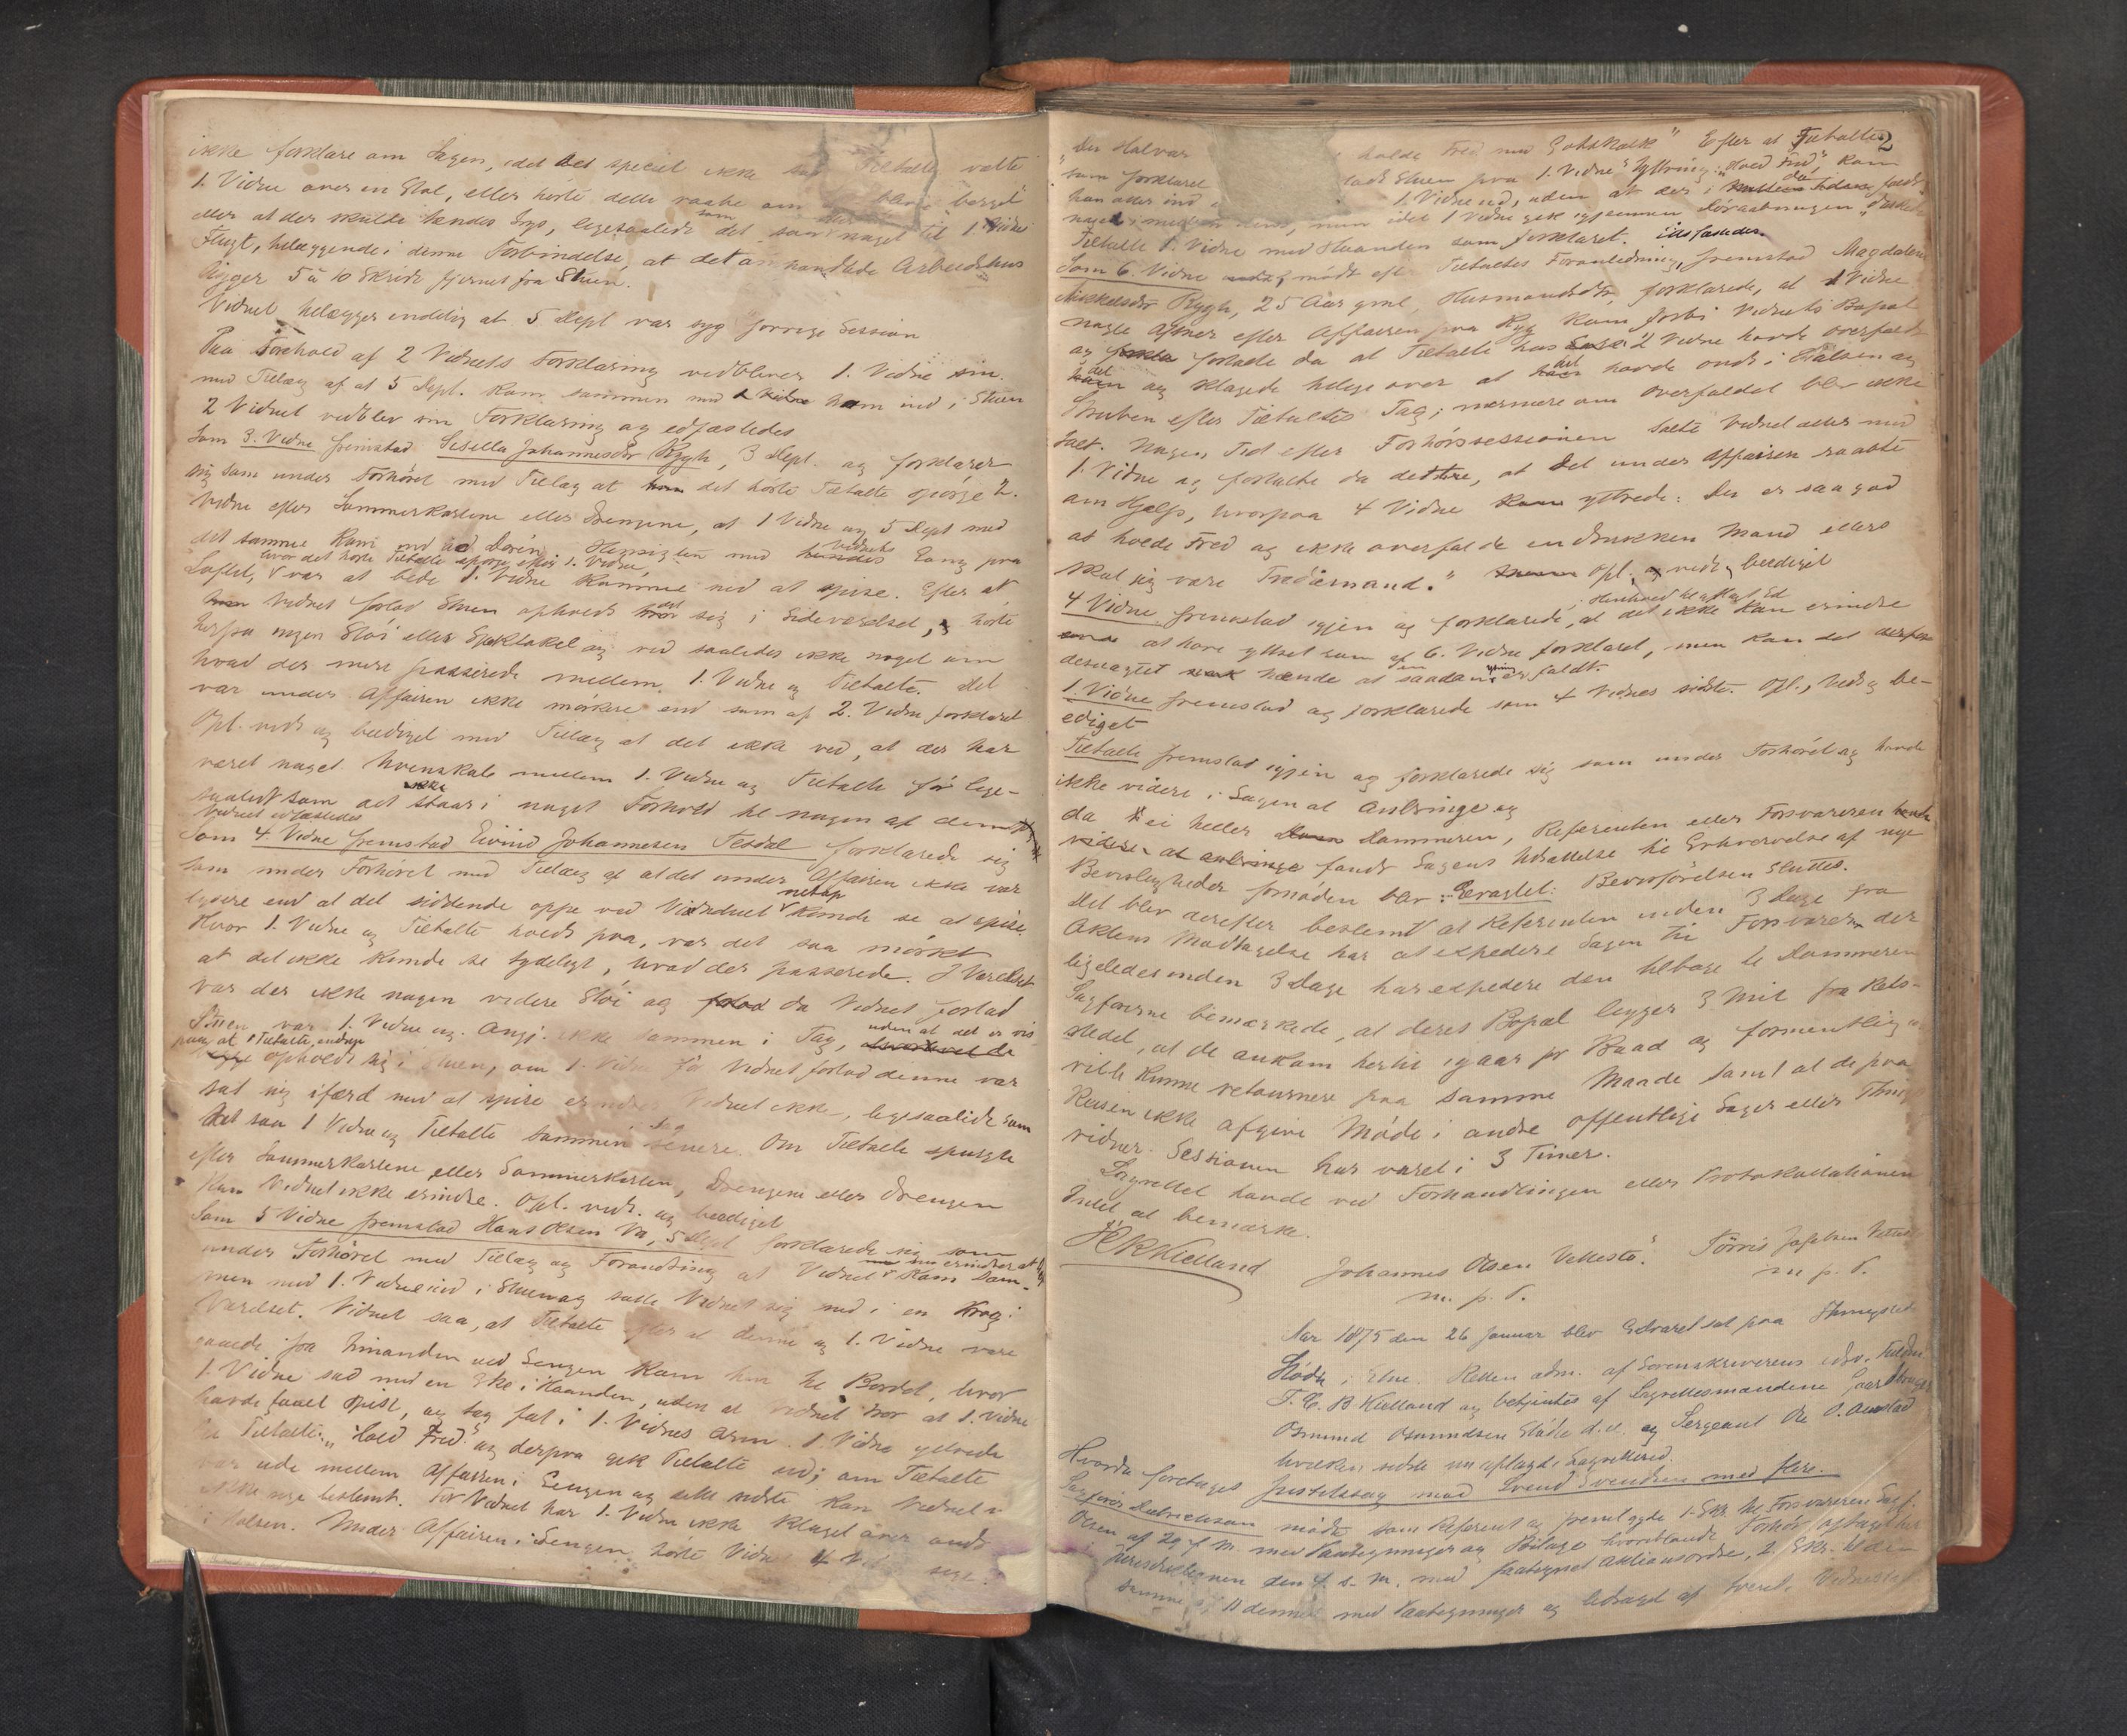 ikke forklare om Sagen, idet det speciel ikke saa Tiltalte vælte
1. Vidne over en Stol, eller hørte dette raabe om at blive berget
eller at der skulle tændes Lys, ligesaalidt som det saa noget til 1 Vidnes
Flugt, tilæggende i denne Forbindelse, at det omhandlede Arbeidshus
ligger 5 à 10 Skridt fjernet fra Stuen.
Vidnet tilægger endelig at 5 Dept var syg forrige Session
Paa Forehold af 2 Vidnets Forklaring vedbliver 1. Vidne sin
med Tillæg af at 5 Dept. kom sammen med ham ind i Stuen
2 Vidnet vedblev sin Forklaring og edfæstedes
Som 3. Vidne fremstod Sisella Johannesdtr Rygh, 3 Dept. og forklarer
sig som under Forhøret med Tillæg at det hørte Tiltalte spørge 2.
Vidne efter Sommerkarlene eller Drengene, at 1 Vidne og 5 Dept med
det samme kom ned ad Døren Hensigten med Vidnets Gang paa
hvor det hørte Tiltalte spørge efter 1. Vidne,
Loftet, var at bede 1. Vidne komme ned at spise. Efter at
Vidnet forlod Stuen opholdt det sig i Sideværelset, hørte
herfra ingen Støi eller Spektakel og ved saaledes ikke noget om
hvad der mere passerede mellem 1. Vidne og Tiltalte. Det
var under Affairen ikke mørkere end som af 2. Vidne forklaret
Opl. veds og beediget med Tillæg at det ikke ved, at der har
været noget Uvenskab mellem 1. Vidne og Tiltalte før lige-
saalidt som det ikke staar i noget Forhold til nogen af dem
Vidnet edfæstedes
Som 4. Vidne fremstod Eivind Johannesen Tesdal forklarede sig
som under Forhøret med Tillæg af at det under Affairen ikke var
lysere end at det siddende oppe ved Vinduet netop kunde se at spise.
Hvor 1. Vidne og Tiltalte holdt paa, var det saa mørkt
at det ikke kunde se tydeligt, hvad der passerede. I Værelset
var der ikke nogen videre Støi og da Vidnet forlod
Stuen var 1. Vidne og Ang. ikke sammen i Tag, uden at det er vis
paa, at Tiltalte endnu
opholdt sig i Stuen, om 1. Vidne før Vidnet forlod denne var
sat sig ifærd med at spise erindrer Vidnet ikke, ligesaalidt som
det saa 1 Vidne og Tiltalte sammen senere. Om Tiltalte spurgte
efter Sommerkarlene eller Sommerkarlen, Drengene eller Drengen
kan Vidnet ikke erindre. Opl. veds. og beediget
Som 5 Vidne fremstod Hans Olsen Va, 5 Dept forklarede sig som
under Forhøret med Tillæg og Forandring at Vidnet nu erindrer at kom sam-
men med 1. Vidne ind i Stuen og satte Vidnet sig ned i en Krog i
Værelset. Vidnet saa, at Tiltalte efter at denne og 1. Vidne vare
gaaede fra hinanden ved Sengen kom hen til Bordet, hvor
1. Vidne sad med en Ske i Haanden, uden at Vidnet tror at 1. Vidne
havde faaet spist, og tog fat i 1. Vidnes Arm. 1. Vidne yttrede
til Tiltalte: "Hold Fred" og derpaa gik Tiltalte ud; om Tiltalte
var ude mellem Affairen i Sengen og dette sidste kan Vidnet
ikke sige bestemt. For Vidnet har 1. Vidne ikke klaget over ondt
i Halsen. Under Affairen i Sengen hørte Vidnet 4 Vidne sige:
2
"Du Halvar holde Fred med Godtfolk" Efter at Tiltalte
som forklaret forlod Stuen paa 1. Vidnes Yttring: "hold Fred" kom
han atter ind 1. Vidne ud, uden at der da faldt
noget; men idet 1 Vidne gik igjennem Døraabningen
Tiltalte 1. Vidne med Haanden som forklaret. Edfæstedes
Som 6. Vidne mødt eft. Tiltaltes Foranledning, fremstod Magdalena
Mikkelsdtr Rygh, 25 Aar gml, Husmandsdtr, forklarede, at 1 Vidne
nogle Aftner efter Affairen paa Ryg kom forbi Vidnets Bopæl
og fortalte da at Tiltalte hos 2 Vidne havde overfaldt
det og klagede tillige over at det havde ondt i Halsen og
Struben efter Tiltaltes Tag; nærmere om Overfaldet blev ikke
talt. Nogen Tid efter Forhørssessionen talte Vidnet atter med
1. Vidne og fortalte da dette, at det under Affairen raabte
om Hjælp, hvorpaa 4 Vidne yttrede: Du er saa god
at holde Fred og ikke overfalde en drukken Mand ellers
skal jeg være Trediemand." Opl., veds, beediget
4 Vidne fremstod igjen og forklarede, i Henhold til aflagt Ed at det ikke kan erindre
at have yttret som af 6. Vidne forklaret, men kan det derfor
desuagtet hænde at saadan Yttring er faldt.
1. Vidne fremstod og forklarede som 4 Vidnes sidste. Opl., veds og be-
ediget
Tiltalte fremstod igjen og forklarede sig som under Forhøret og havde
ikke videre i Sagen at anbringe og
da ei heller Dommeren, Referenten eller Forsvareren
fandt Sagens Udsættelse til Erhvervelse af nye
Bevisligheder fornøden blev: Eragtet: Bevisførelsen sluttes.
Det blev derefter bestemt at Referenten inden 3 Dage fra
Aktens Modtagelse har at expedere Sagen til Forsvareren der
ligeledes inden 3 Dage har expedere den tilbage til Dommeren
Sagførerne bemærkede, at deres Bopæl ligger 3 Mil fra Rets-
stedet, at de ankom hertil igaar pr Baad og formentlig
ville kunne retournere paa samme Maade samt at de paa
Reisen ikke afgive Møde i andre offentlige Sager eller Thing-
vidner. Sessionen har varet i 3 Timer.
Lagrettet havde ved Forhandlingen eller Protokollationen
Intet at bemærke.
Kielland Johannes Olsen Vallestø Tørris
m. p. P. m. p. P.
Aar 1875 den 26 Januar blev Extraret sat paa Thingstedet
Stødle i Etne. Retten adm. af Sorenskriverens edsv. Fuldm.
T. C. B Kielland og betjentes af Lagrettesmændene Gaardbruger
Osmund Osmundsen Stødle d. e. og Sergeant Ole O. Austad
hvilken sidste nu aflagde Lagretteed.
Hvorda foretoges Justitssag mod Svend Svendsen med flere.
Sagfører mødte som Referent og fremlagde 1. Skr. til Forsvareren Sagf.
Olsen af 29 f. M. med Paategninger og Bilage hvoriblandt Forhør aftaget her
i Jurisdictionen den 4 s. M. med paategnet Aktionsordre, 2 Skr. til
samme med Paategninger og ledsaget af